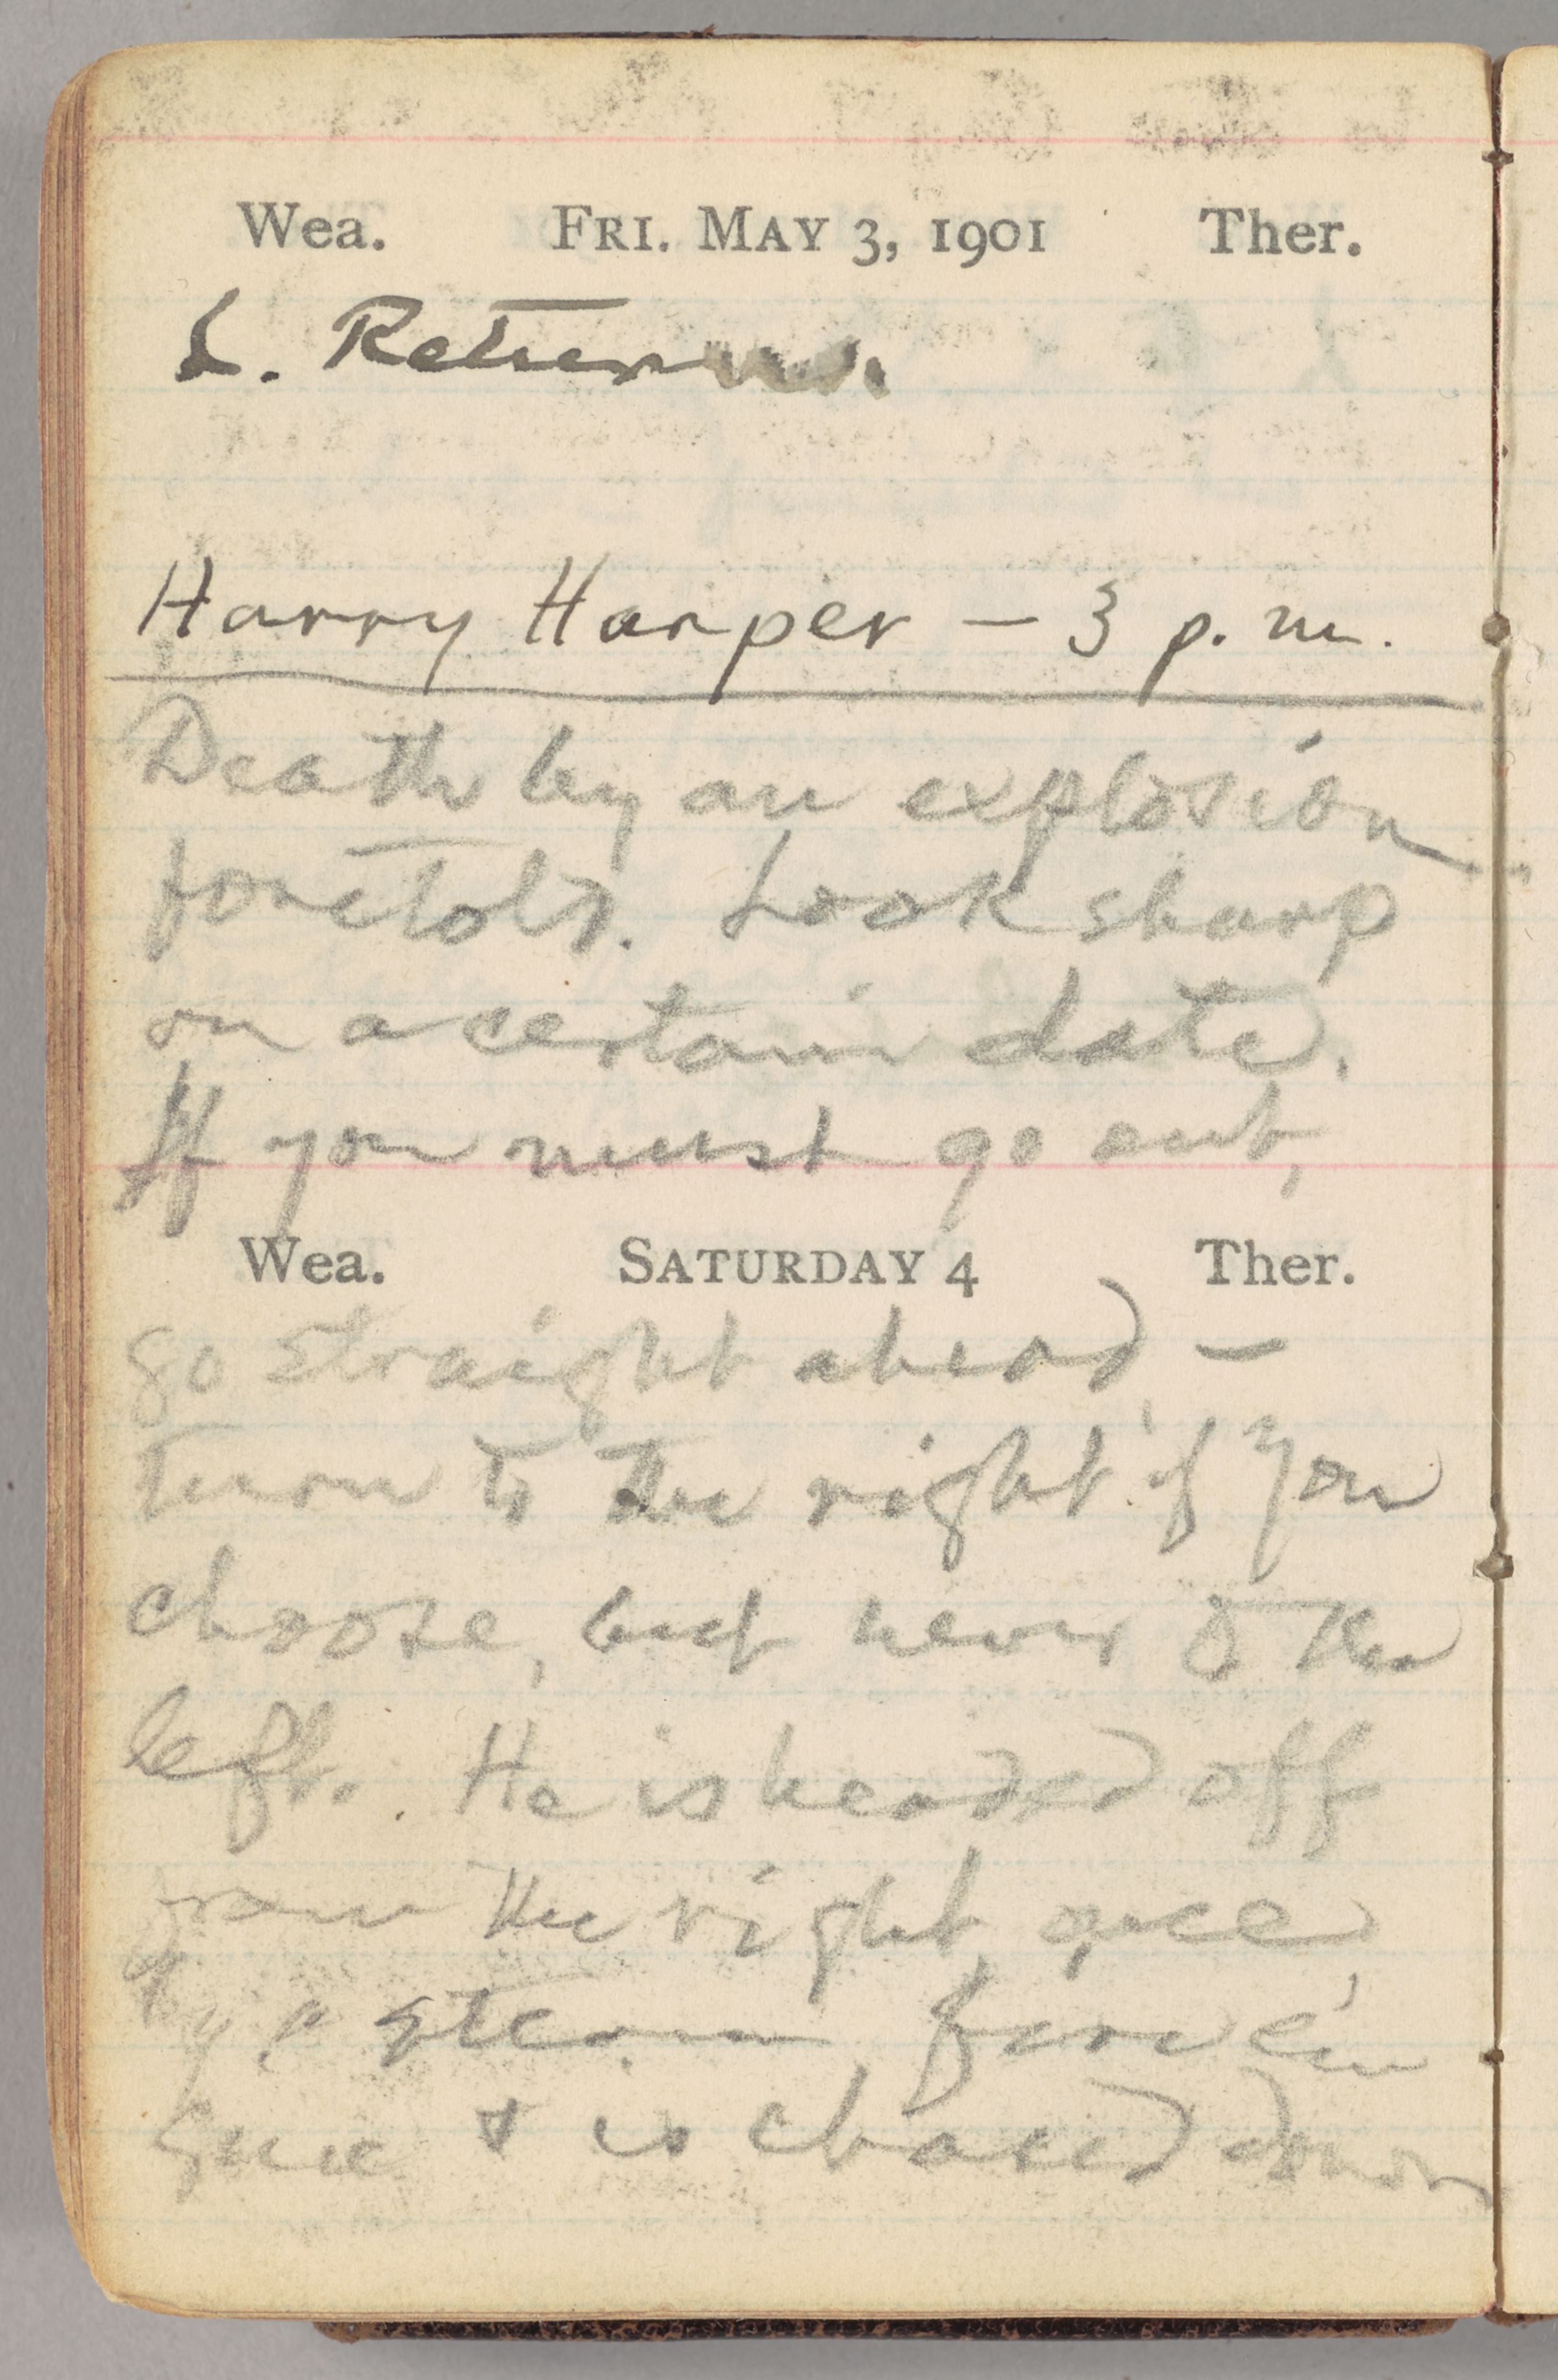 Wea. FRI. MAY 3, 1901 Ther.
L. Returns.
Harry Harper – 3 p.m.
Death by an explosion
foretold. Look sharp
on a certain date.
If you must go out,
Wea. SATURDAY 4 Ther.
go straight ahead –
turn to the right if you
choose, but never to the
left. He is headed off
from the right once,
by a steam fire en
gine & is chased down